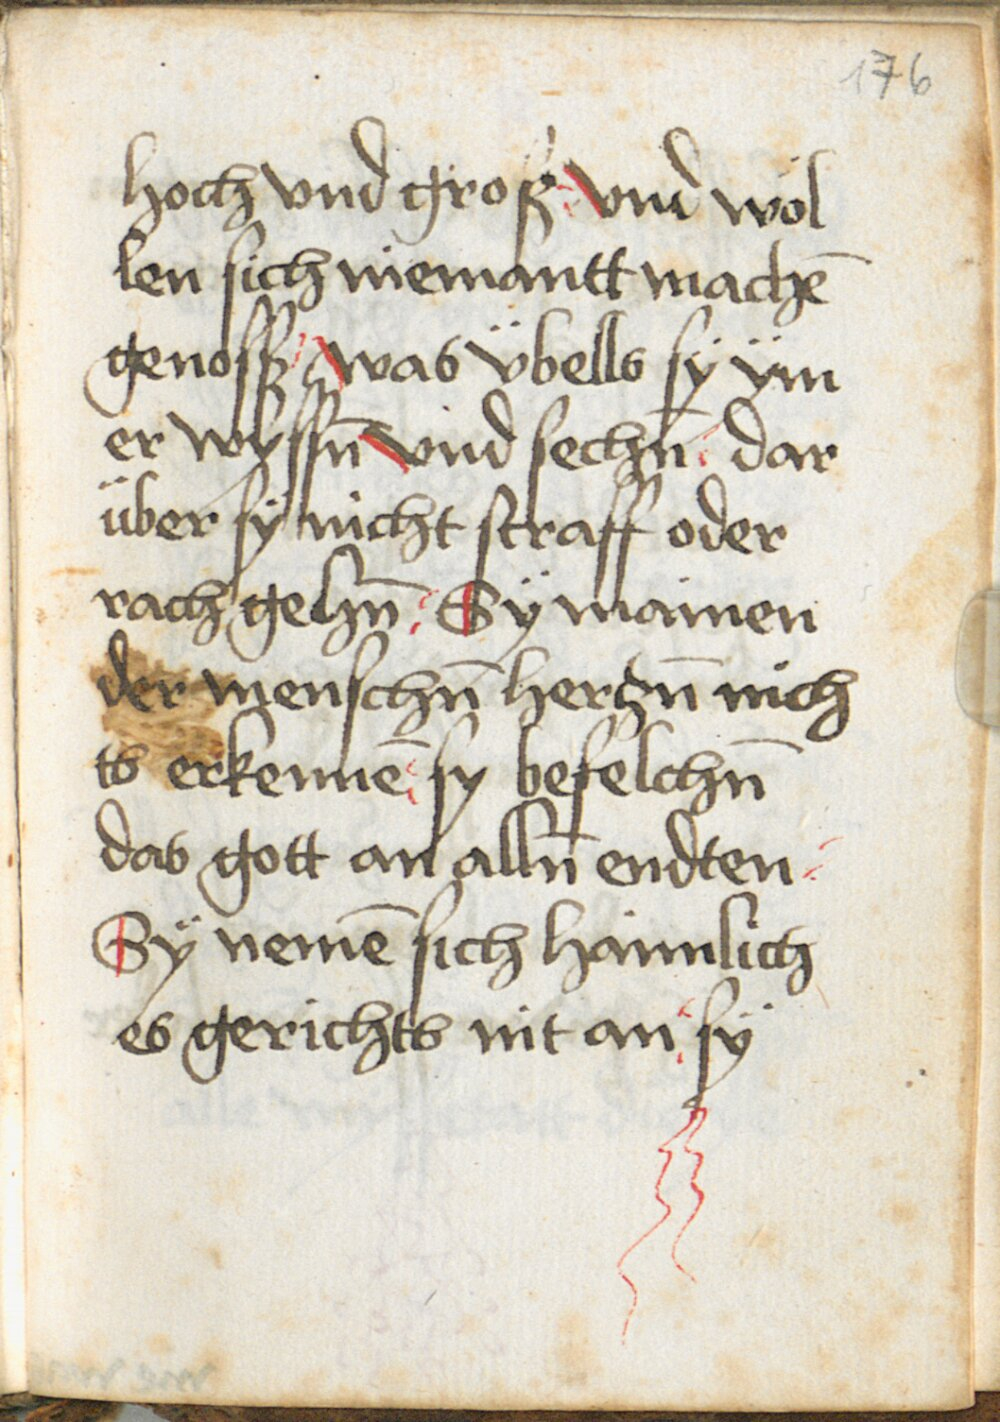 176
hoch vnd groß: vnd wöl
len sich niemantt machē
genoss: was v̈bells sÿ ÿm
er wyssn̄ vnd sechn̄: dar
über sÿ nicht straff oder
rach gehn̄: Sÿ mainen
der menschn̄ hertzn̄ nich
ts erkennē: sy befelchn̄
das gott an alln̄ endten:
Sÿ nemē sich haimlich
es gerichts nit an: sÿ